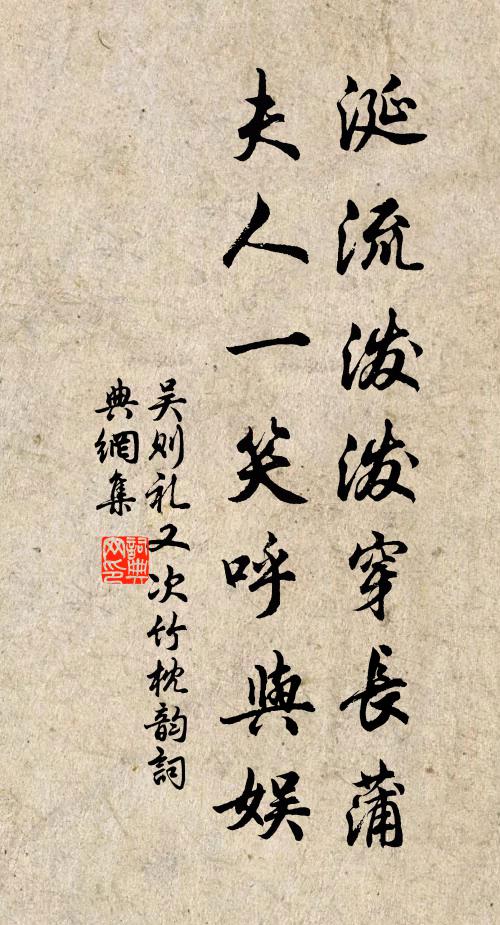 涎流泼泼穿長蒲
夫人一笑呼與娱
吴则礼又次竹枕韵詞
典網集
詞典网印